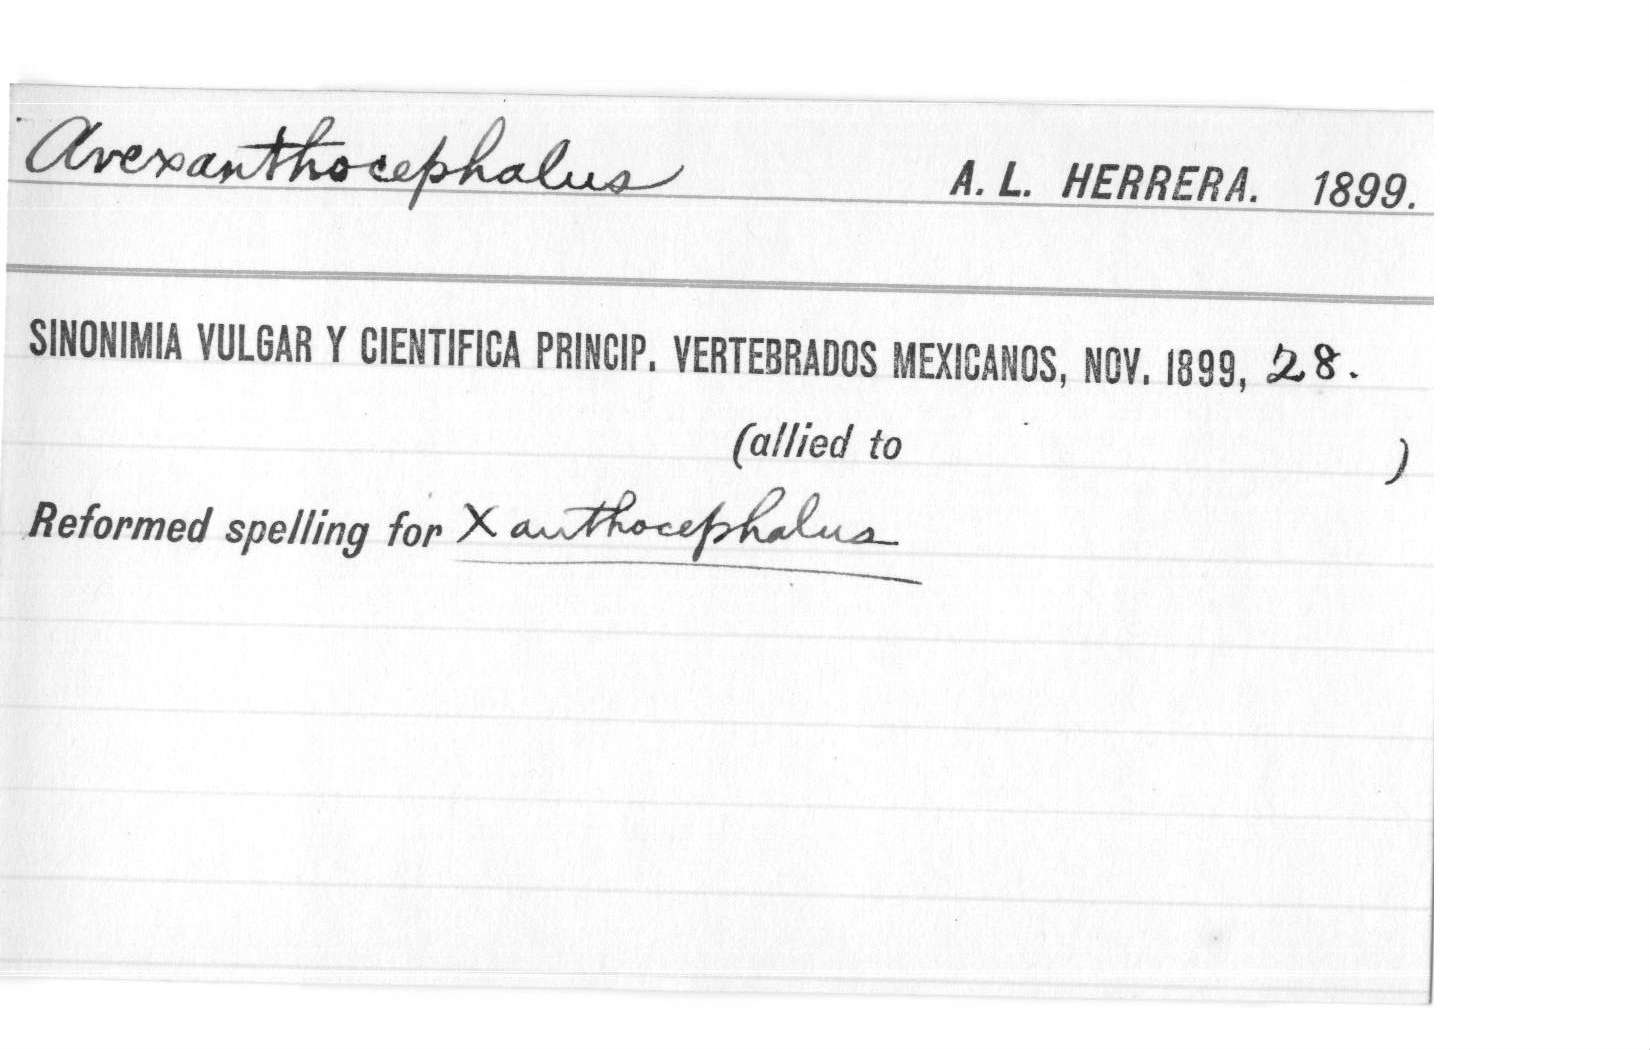 Avexanthocephalus A. L. HERRERA. 1899.
SINONIMIA VULGAR Y CIENTIFICA PRINCIP. VERTEBRADOS MEXICANOS, NOV. 1899, 28.
(allied to )
Reformed spelling for Xanthocephalus